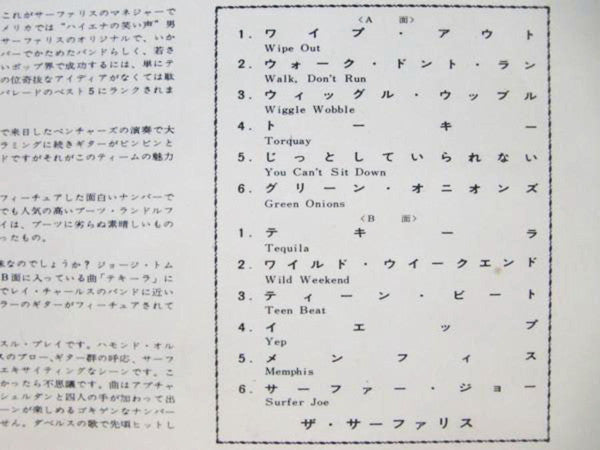 これがサーファリスのマネジャーで
メリカでは“ハイエナの笑い声”男
サーファリスのオリジナルで、いか
バーでかためたバンドらしく、若さ
いポップ界で成功するには、単にテ
の位奇抜なアイディアがなくては駄
パレードのベスト5にランクされま
で来日したベンチャーズの演奏で大
ラミングに続きギターがビンビンと
ドですがそれがこのティームの魅力
フィーチュアした面白いナンバーで
でも人気の高いブーツ・ランドルフ
イは、ブーツに劣らぬ素晴しいもの
ったもの。
なのでしょうか？ ジョージ・トム
B面に入っている曲「テキーラ」に
でレイ・チャールスのバンドに近い
ラーのギターがフィーチュアされて
スル・プレイです。ハモンド・オル
スのブロー、ギター群の呼応、サーフ
エキサイティングなシーンです。こ
かったら不思議です。曲はアプチャ
シェルダンと四人の手が加わって出
ーンが楽しめるゴキゲンなナンバー
せん。ダベルスの歌で先頃ヒットし
〈A 面〉
1. ワイプ・アウト
Wipe Out
2. ウォーク・ドント・ラン
Walk, Don't Run
3. ウィッグル・ウッブル
Wiggle Wobble
4. トーキー
Torquay
5. じっとしていられない
You Can't Sit Down
6. グリーン・オニオンズ
Green Onions
〈B 面〉
1. テキーラ
Tequila
2. ワイルド・ウイークエンド
Wild Weekend
3. ティーン・ビート
Teen Beat
4. イエップ
Yep
5. メンフィス
Memphis
6. サーファー・ジョー
Surfer Joe
ザ・サーファリス